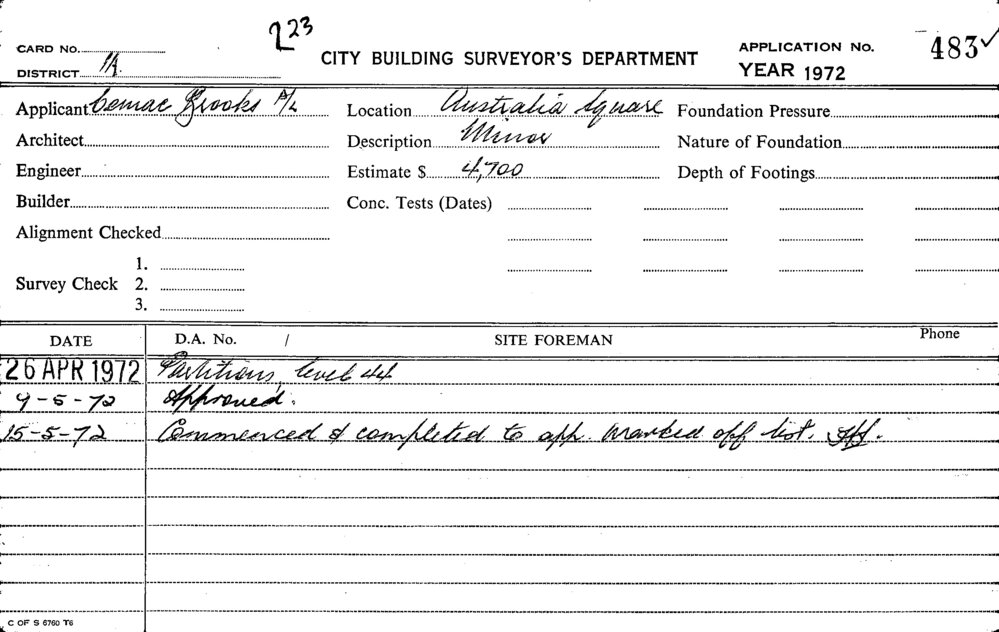 223
CARD No.
DISTRICT 1A.
CITY BUILDING SURVEYOR'S DEPARTMENT
APPLICATION No. 483 ✓
YEAR 1972
Applicant Cemac Brooks P/L
Location Australia Square
Foundation Pressure
Architect
Description Minor
Nature of Foundation
Engineer
Estimate $ 4,700
Depth of Footings
Builder
Conc. Tests (Dates)
Alignment Checked
Survey Check
1.
2.
3.
DATE D.A. No. / SITE FOREMAN Phone
26 APR 1972 Partitions, level 44
9-5-72 Approved.
15-5-72 Commenced & completed to app. marked off list.
C OF S 6760 T6